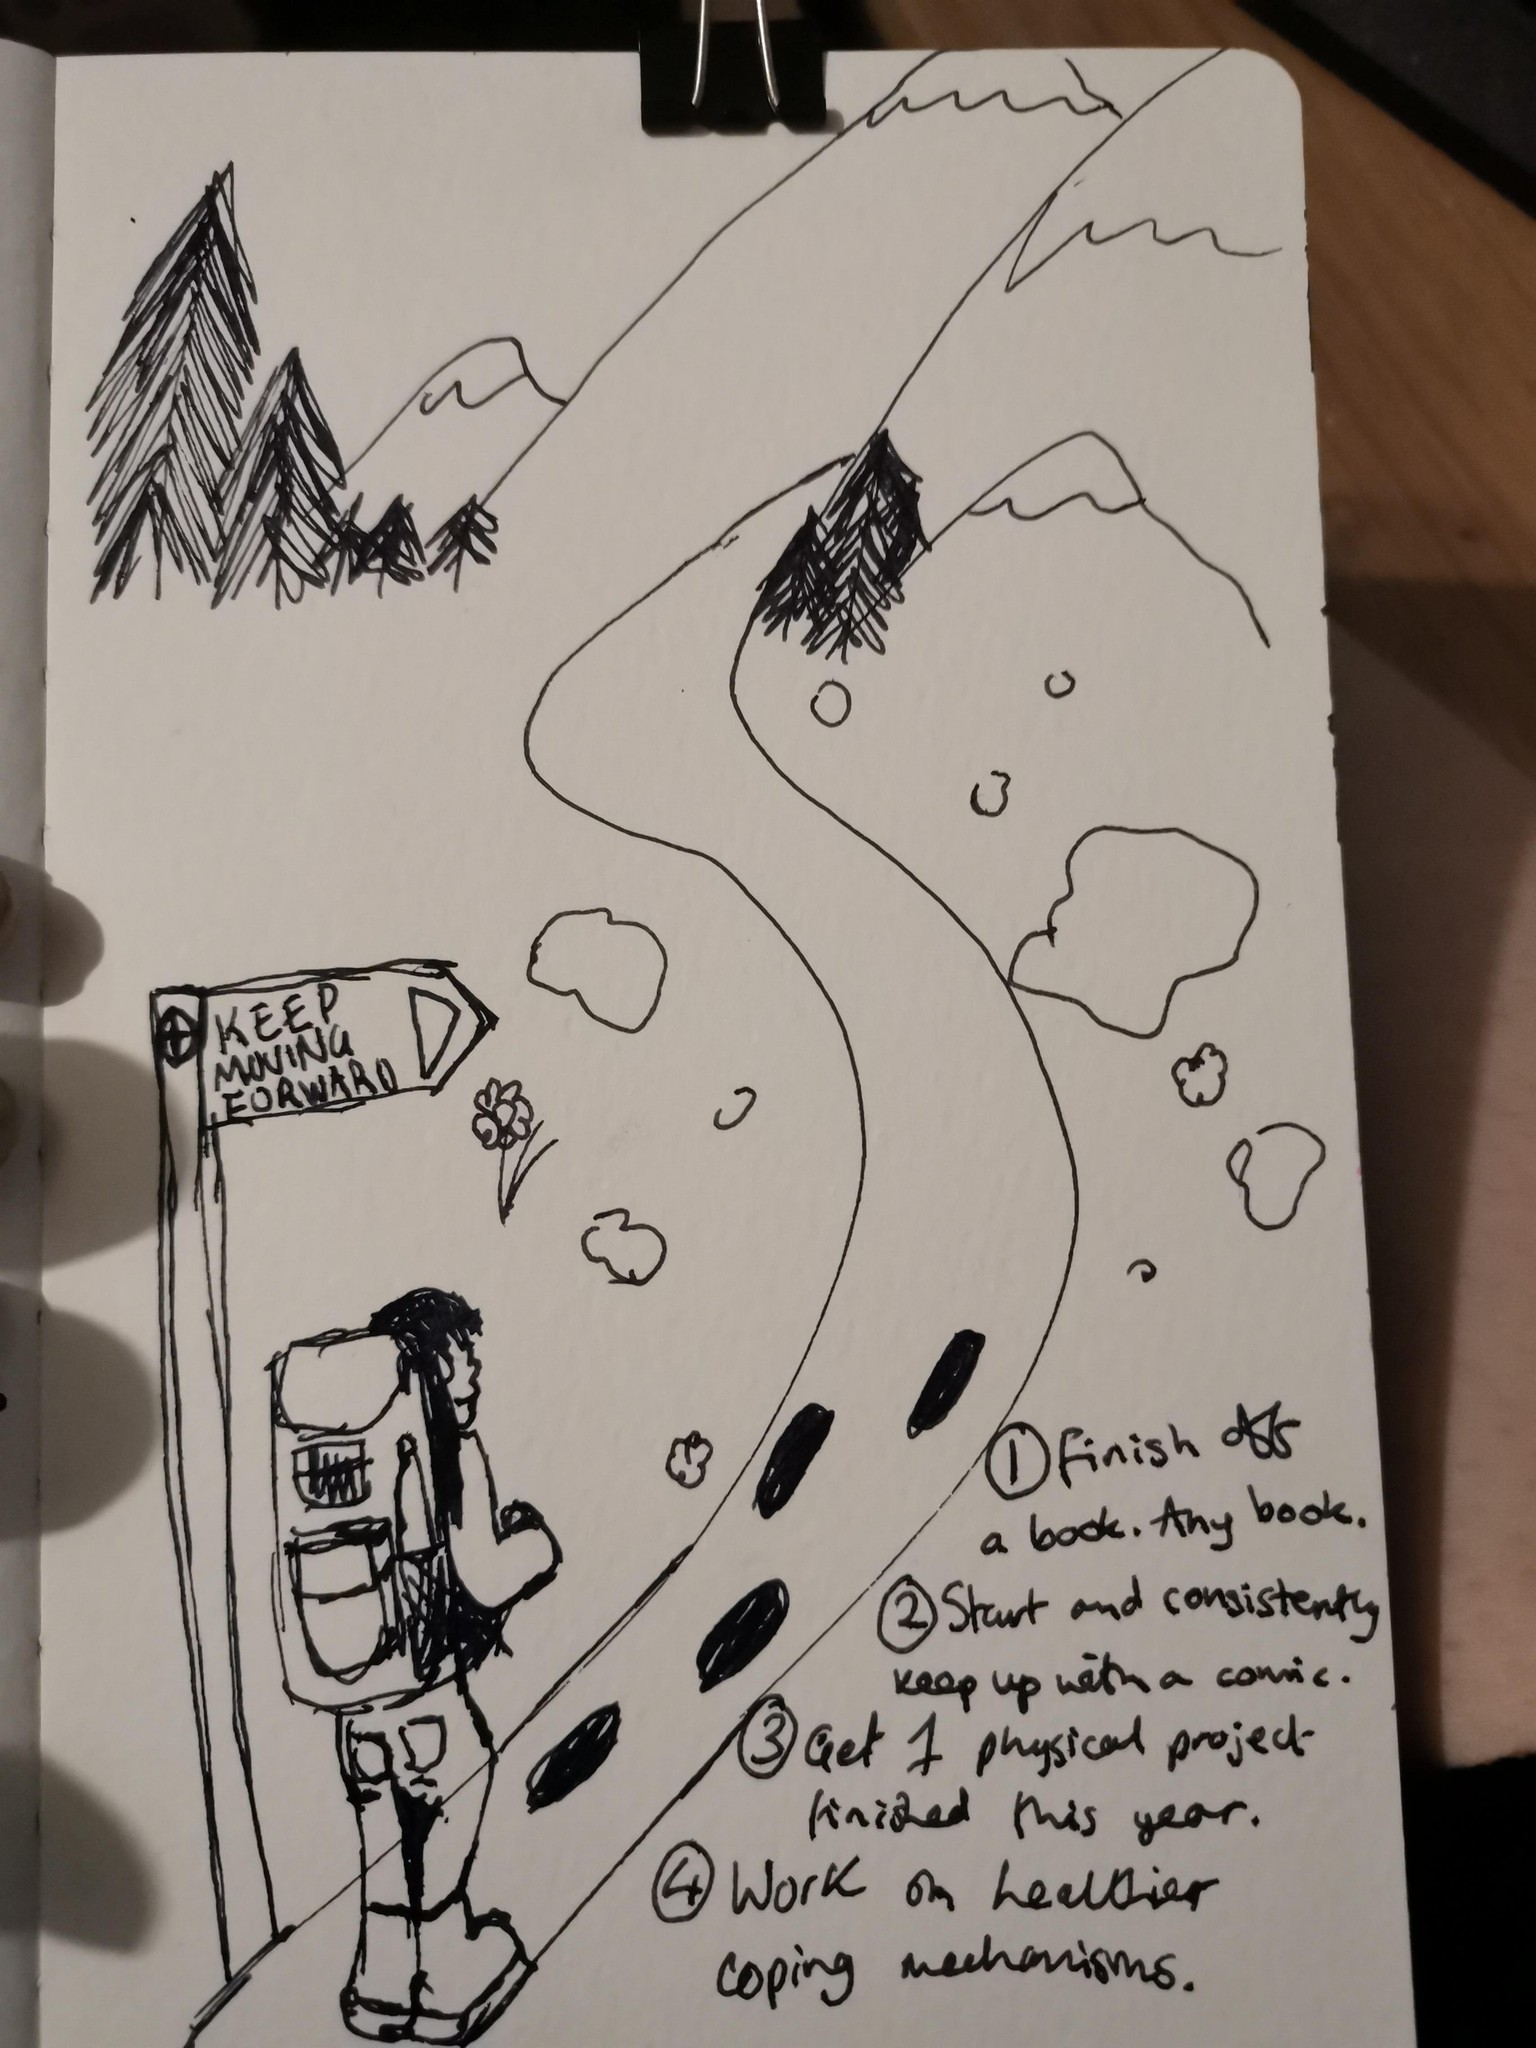 KEEP
MOVING
FORWARD
① Finish off
a book. Any book.
② Start and consistently
keep up with a comic.
③ Get 1 physical project
finished this year.
④ Work on healthier
coping mechanisms.